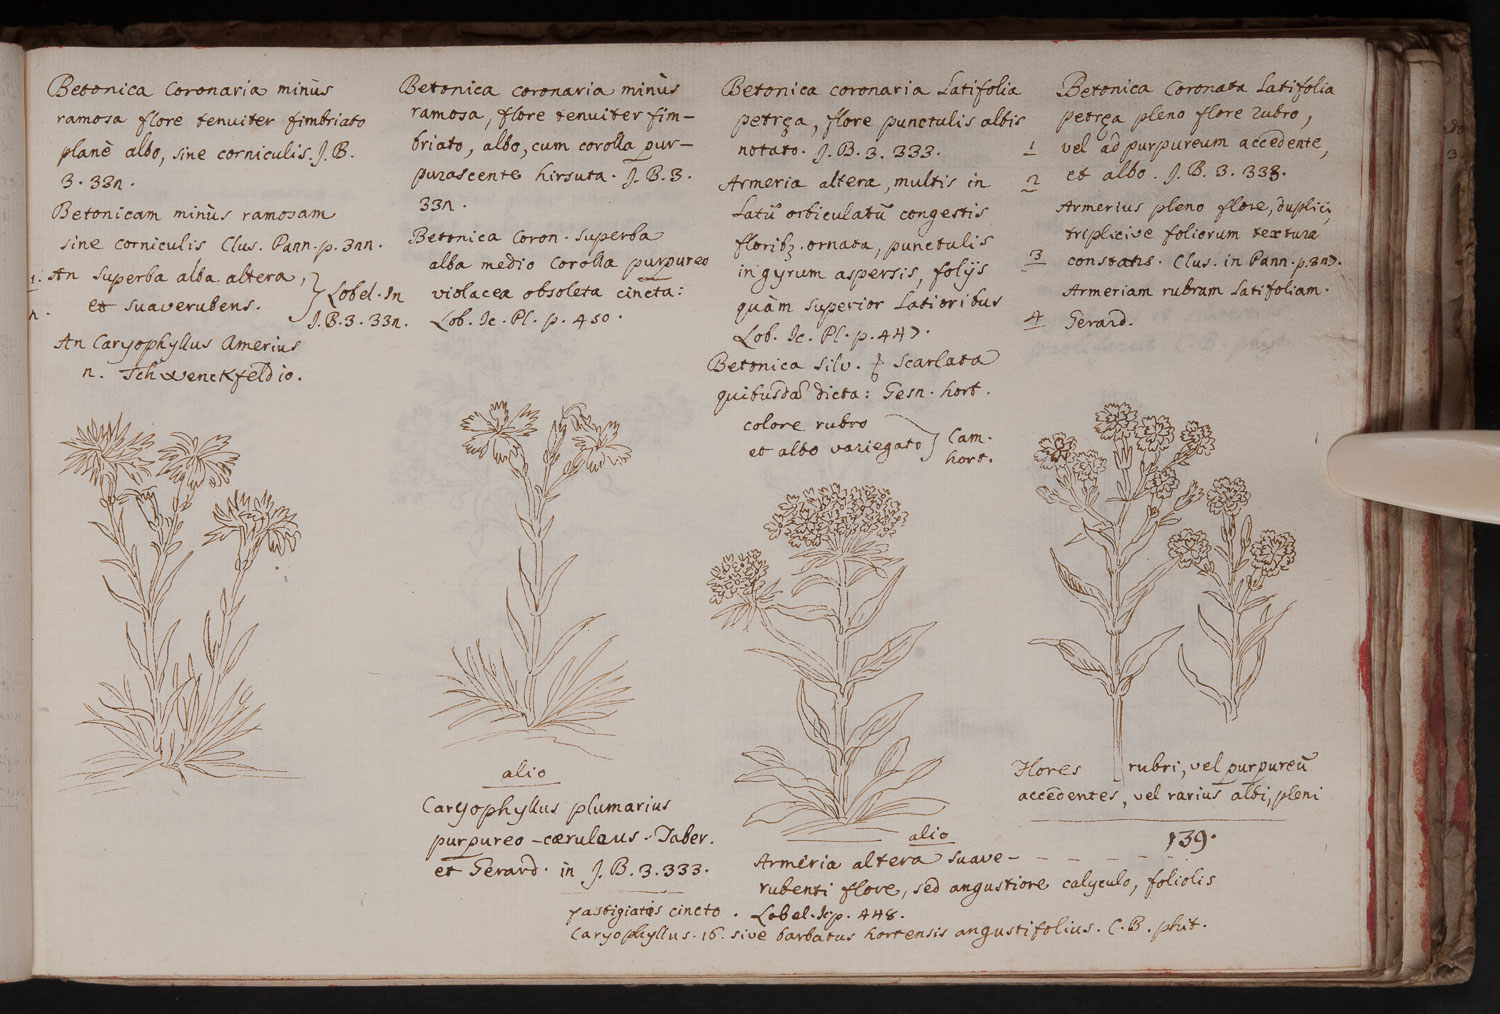 Betonica Coronaria minùs
ramosa flore tenuiter fimbriato
planè albo, sine corniculis. J. B.
3. 33n.
Betonicam minùs ramosam
sine corniculis Clus. Pann. p. 3nn.
1. An Superba alba altera,
et suaverubens. } Lobel. In
n. J. B. 3. 33n.
An Caryophyllus Amerius
n. Schwenckfeldio.
Betonica coronaria minùs
ramosa, flore tenuiter fim-
briato, albo, cum corolla pur-
purascente hirsuta. J. B. 3.
33n.
Betonica Coron. Superba
alba medio Corolla purpureo
violacea obsoleta cincta:
Lob. Ic. Pl. p. 450.
alio
Caryophyllus plumarius
purpureo-cæruleus. Taber.
et Gerard. in J. B. 3. 333.
Betonica coronaria Latifolia
petręa, flore punctulis albis
notato. J. B. 3. 333.
Armeria altera, multis in
Latū orbiculatū congestis
floribꝫ ornata, punctulis
in gyrum aspersis, folijs
quàm superior Latioribus
Lob. Ic. Pl. p. 447.
Betonica silv. Scarlata
quibusdā dicta: Gesn. hort.
colore rubro
et albo variegato } Cam.
hort.
alio
Armeria altera suave-
rubenti flore, sed angustiore calyculo, foliolis
fastigiatis cincto. Lobel. Ic. p. 448.
Caryophyllus. 16. sive barbatus hortensis angustifolius. C. B. phit.
Betonica Coronata Latifolia
petręa pleno flore rubro,
1 vel ad purpureum accedente,
2 et albo. J. B. 3. 338.
Armerius pleno flore, duplici,
triplicive foliorum textura
3 constans. Clus. in Pann. p. 3n7.
Armeriam rubram latifoliam.
4 Gerard.
Flores rubri, vel purpureū
accedentes, vel rarius albi, pleni
139.